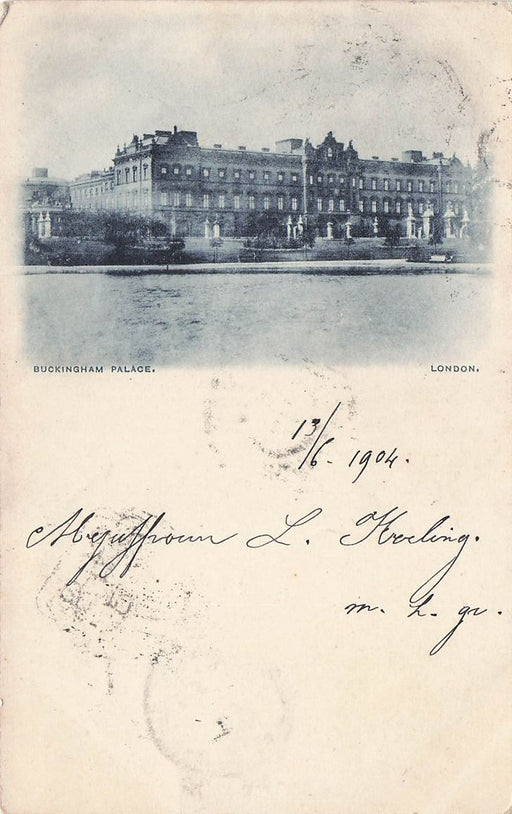 BUCKINGHAM PALACE.
LONDON.
13/6-1904.
Mejuffrouw L. Keeling.
m. h. gr.